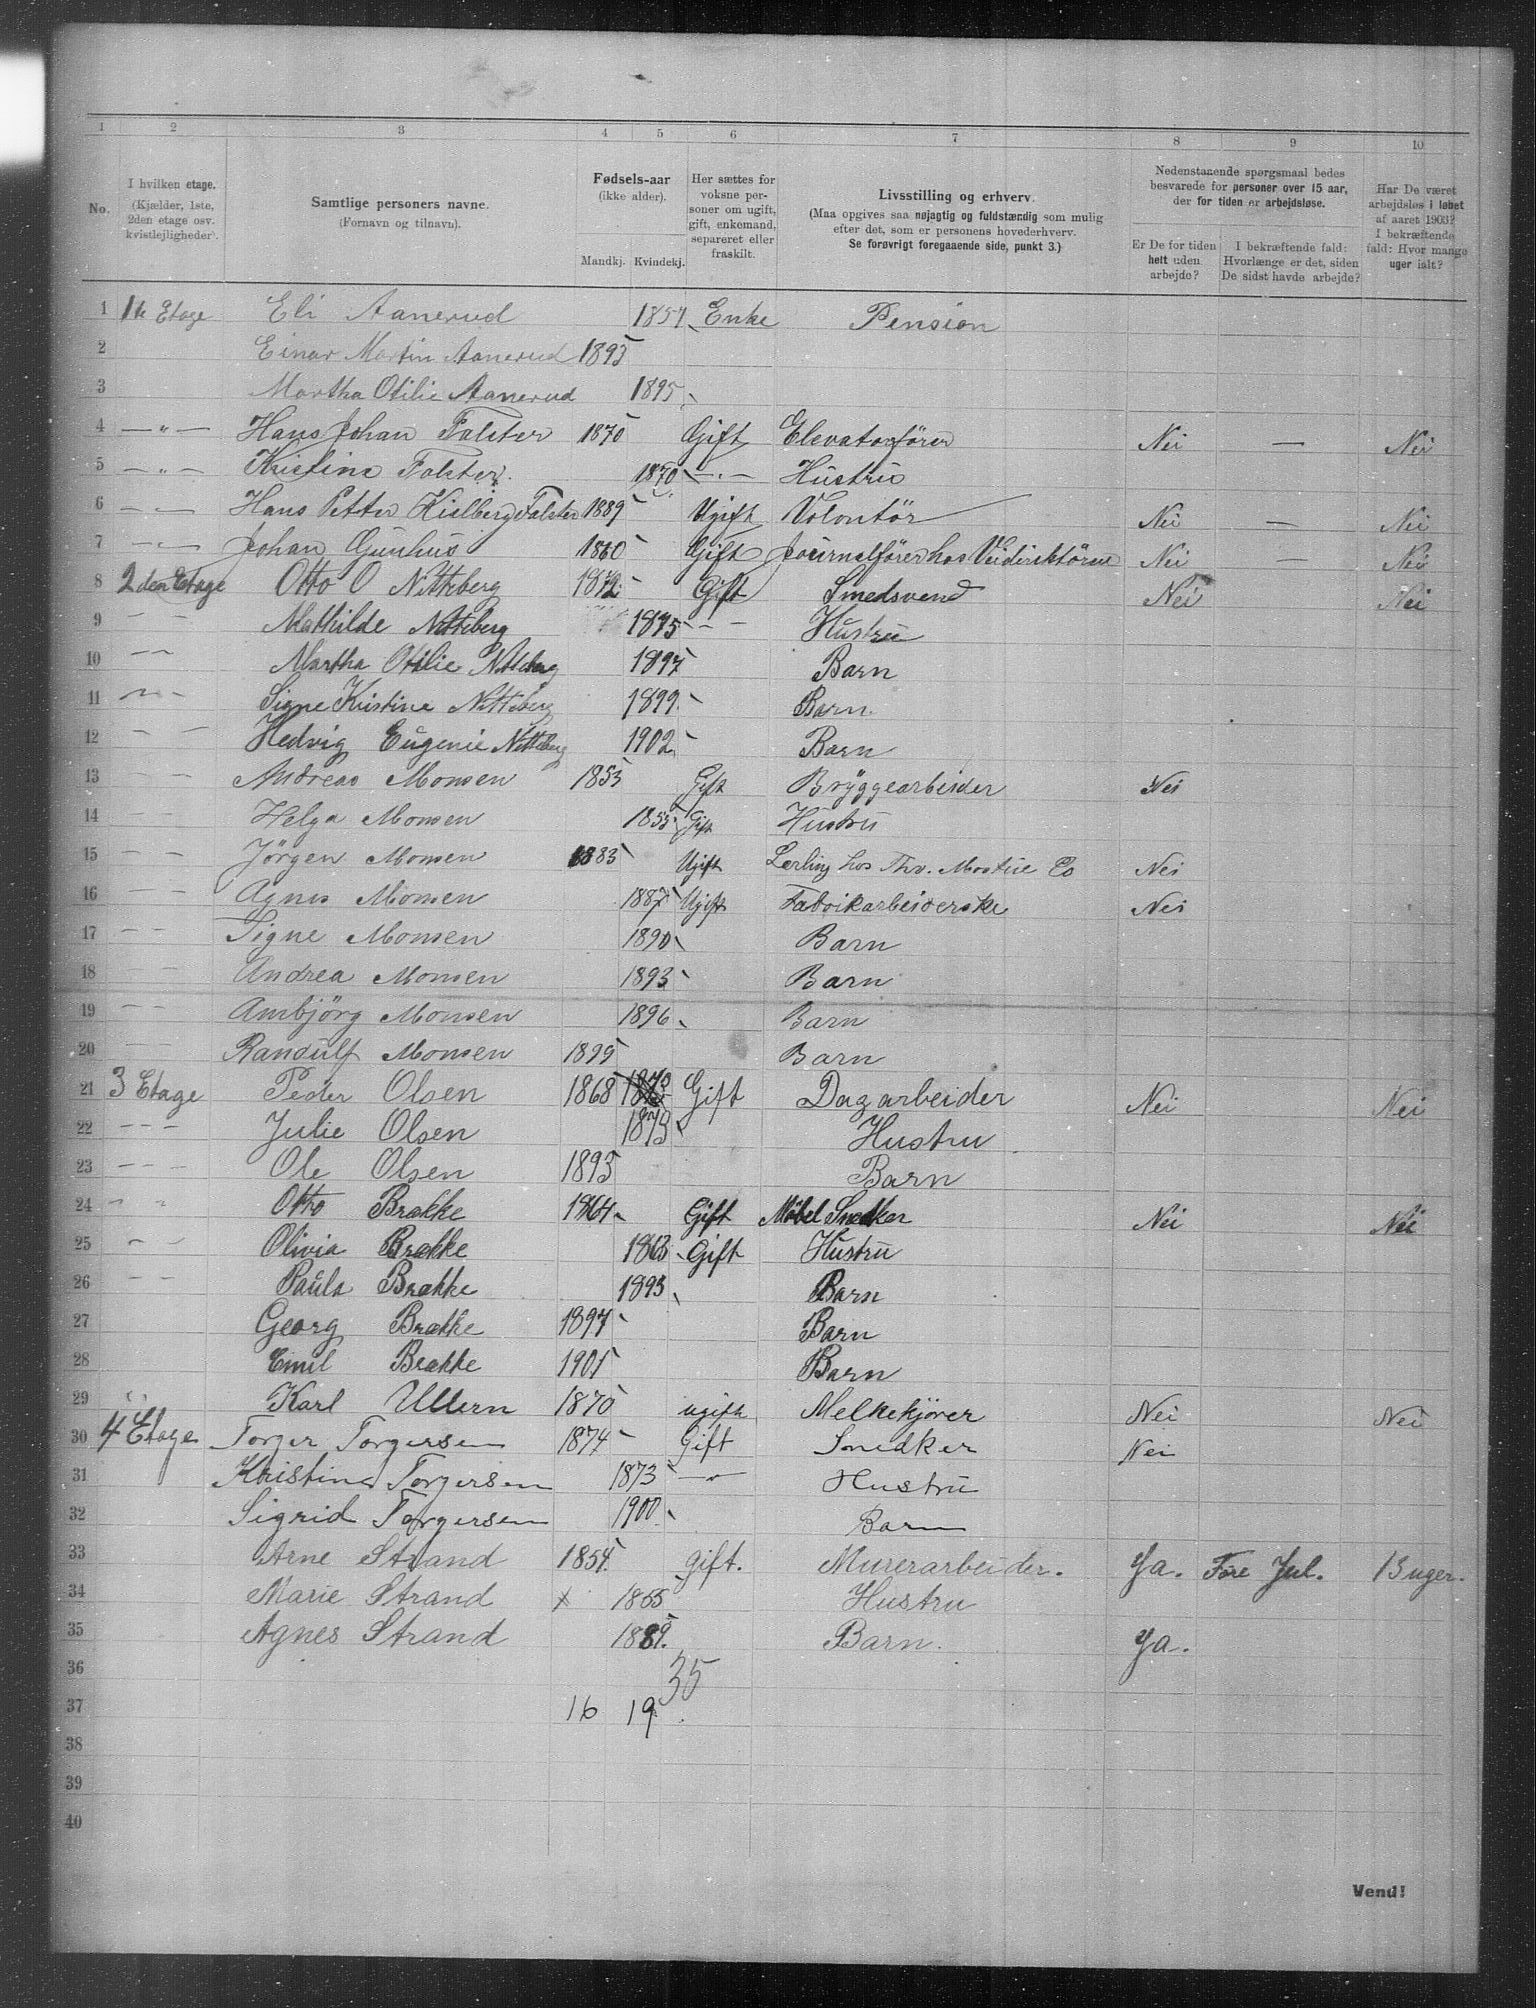 1 2 3 4 5 6 7 8 9 10
No.
I hvilken etage.
(Kjælder, 1ste,
2den etage osv.
kvistlejligheder).
Samtlige personers navne.
(Fornavn og tilnavn).
Fødsels-aar
(ikke alder).
Mandkj. Kvindekj.
Her sættes for
voksne per-
soner om ugift,
gift, enkemand,
separeret eller
fraskilt.
Livsstilling og erhverv.
(Maa opgives saa nøjagtig og fuldstændig som mulig
efter det, som er personens hovederhverv.
Se forøvrigt foregaaende side, punkt 3.)
Nedenstaaende spørgsmaal bedes
besvarede for personer over 15 aar,
der for tiden er arbejdsløse.
Er De for tiden
helt uden
arbejde?
I bekræftende fald:
Hvorlænge er det, siden
De sidst havde arbejde?
Har De været
arbejdsløs i løbet
af aaret 1903?
I bekræftende
fald: Hvor mange
uger ialt?
1 1ste Etage Eli Aanerud 1857 Enke Pension
2 Einar Martin Aanerud 1893
3 Martha Otilie Aanerud 1895
4 — " — Hans Johan Falster 1870 Gift Elevatorfører Nei — Nei
5 — " — Kristine Falster 1870 — " — Hustru
6 — " — Hans Petter Kislberg Falster 1889 Ugift Volontør Nei — Nei
7 — " — Johan Gunhus 1860 Gift Journalfører hos Veidirektøren Nei — Nei
8 2den Etage Otto O Nitteberg 1872 Gift Smedsvend Nei Nei
9 — Mathilde Nitteberg 1875 — — Hustru
10 — — Martha Otilie Nitteberg 1897 Barn
11 — — Signe Kristine Nitteberg 1899 Barn.
12 — — Hedvig Eugenie Nitteberg 1902 Barn
13 — — Andreas Monsen 1853 Gift Bryggearbeider Nei
14 — — Helga Monsen 1855 Gift Hustru
15 — — Jörgen Monsen 1883 Ugift Lerling hos Thv. Mostue Co Nei
16 — — Agnes Monsen 1887 Ugift Fabrikarbeiderske Nei
17 — — Signe Monsen 1890 Barn
18 — — Andrea Monsen 1893 Barn
19 — — Ambjörg Monsen 1896 Barn
20 — — Randulf Monsen 1899 Barn
21 3 Etage Peder Olsen 1868 Gift Dagarbeider Nei Nei
22 — — — Julie Olsen 1873 Hustru
23 — — — Ole Olsen 1893 Barn
24 — — Otto Brække 1864 Gift Möbel Snedker Nei Nei
25 — — Olivia Brække 1863 Gift Hustru
26 — — Paula Brække 1893 Barn
27 Georg Brække 1897 Barn
28 Emil Brække 1901 Barn
29 " Karl Ullern 1870 ugift Melkekjører Nei Nei
30 4 Etage Torger Torgersen 1874 Gift Snedker Nei
31 Kristine Torgersen 1873 — " — Hustru
32 Sigrid Torgersen 1900 Barn
33 Arne Strand 1854 gift. Murerarbeider. Ja. Före Jul. 13 uger.
34 Marie Strand x 1855 Hustru
35 Agnes Strand 1889. Barn. Ja.
36 35
37 16 19
38
39
40
Vend!